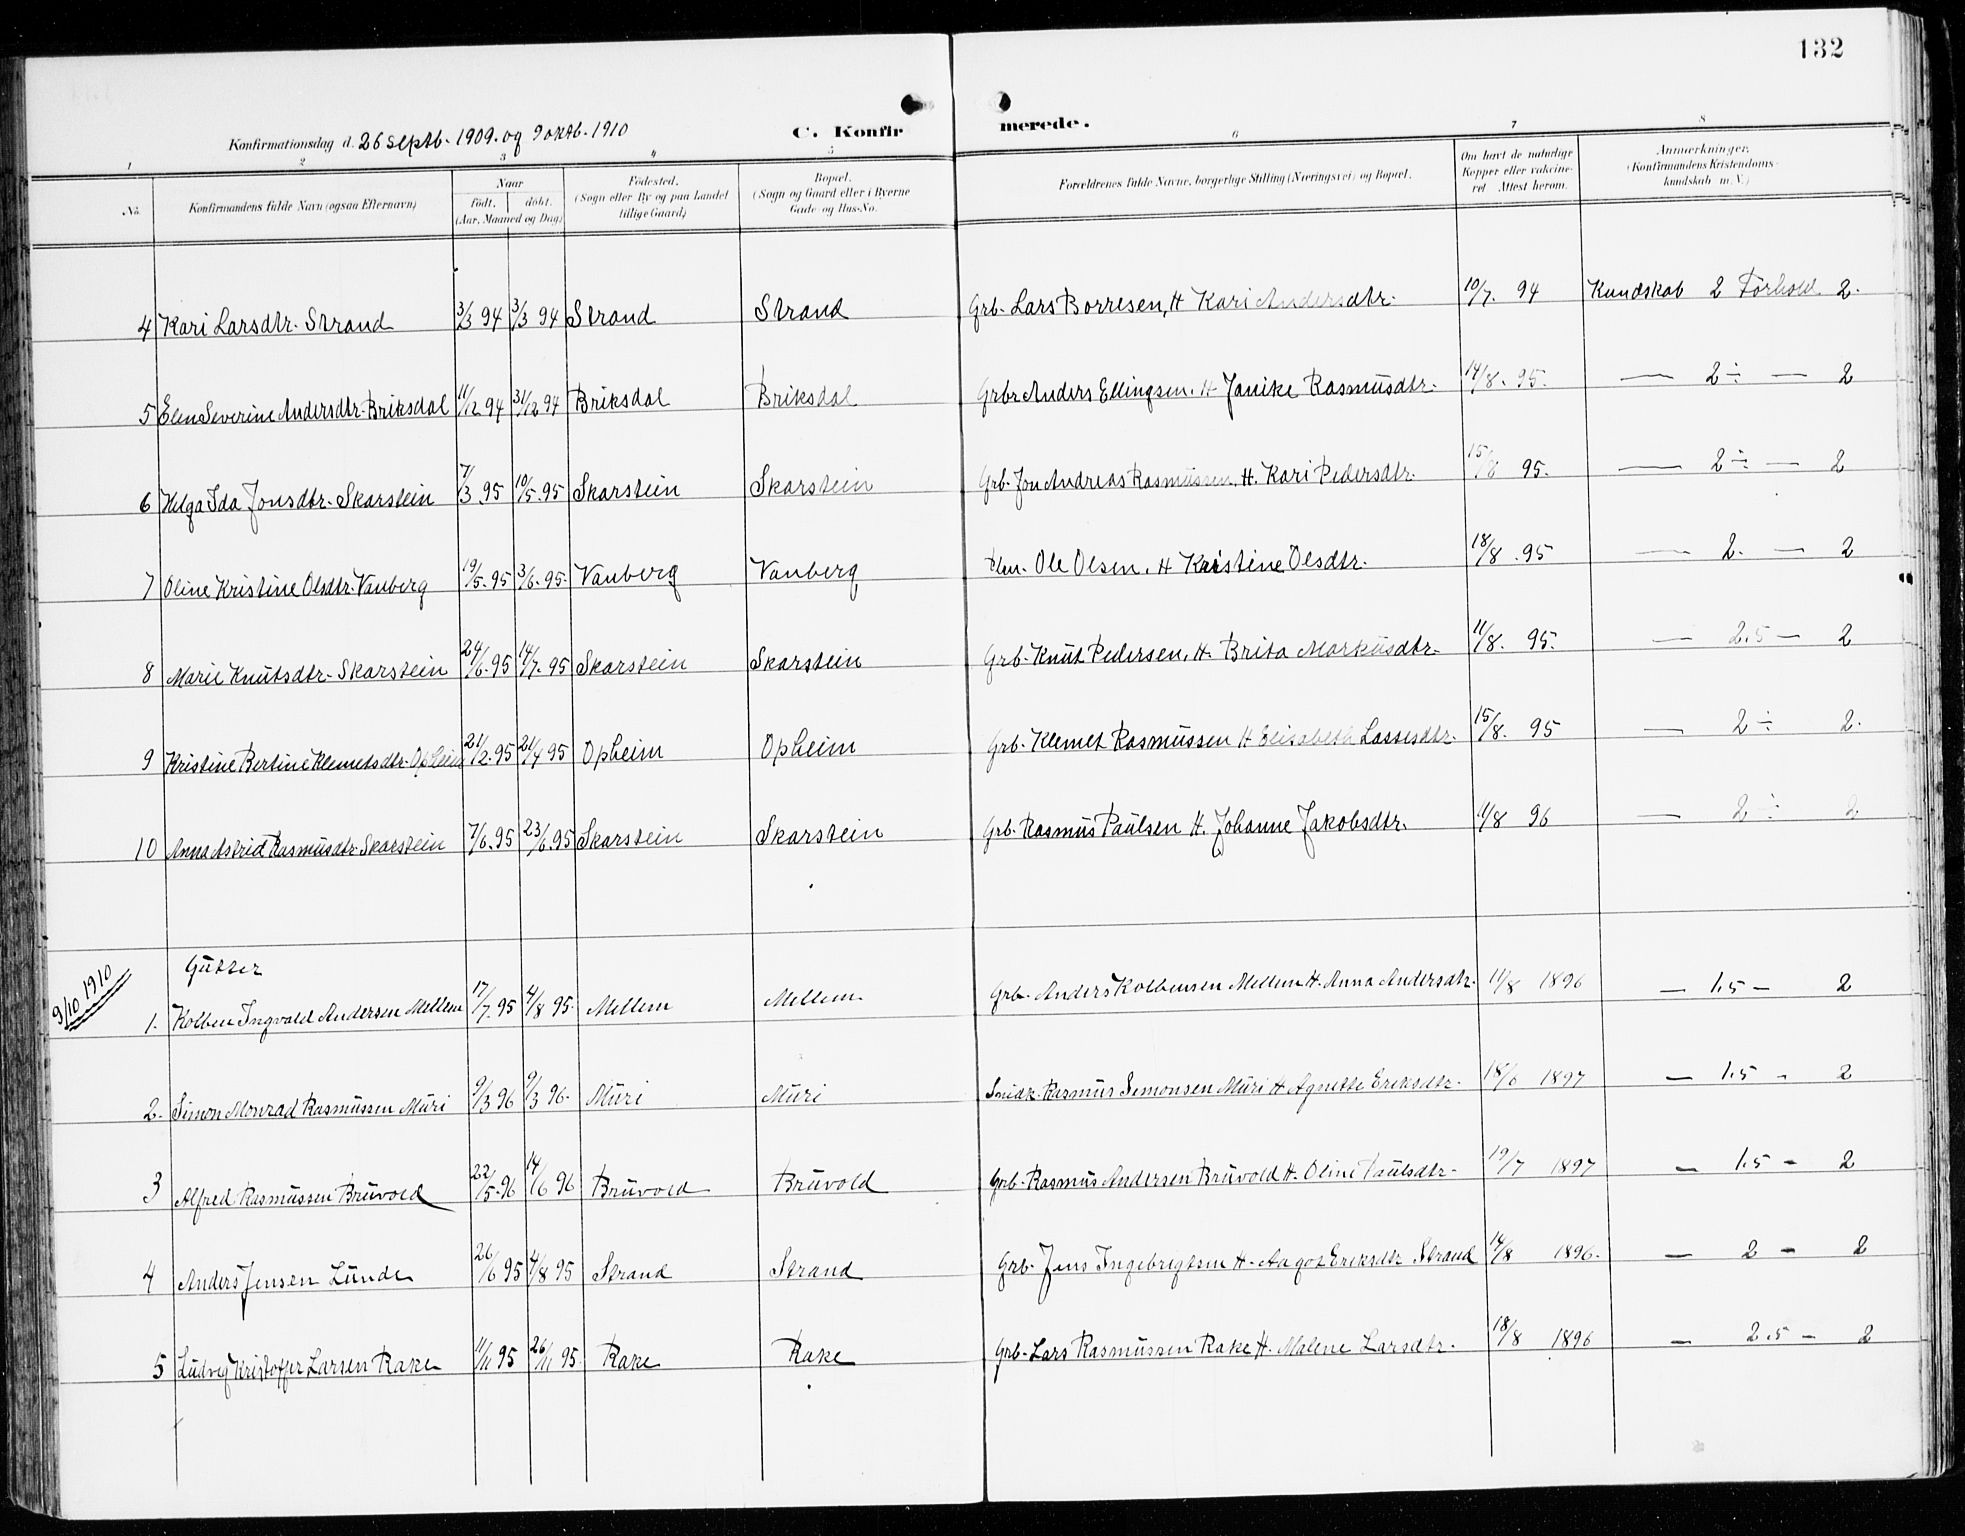 132
Konfirmationsdag d. 26 septb. 1909. og 9 oktb. 1910
C. Konfirmerede.
1 2 3 4 5 6 7 8
No. Konfirmandens fulde Navn (ogsaa Efternavn) Naar født. døbt. (Aar, Maaned og Dag) Fødested. (Sogn eller By og paa Landet tillige Gaard) Bopæl. (Sogn og Gaard eller i Byerne Gade og Hus-No. Forældrenes fulde Navne, borgerlige Stilling (Næringsvei) og Bopæl. Om havt de naturlige Kopper eller vakcineret Attest herom. Anmærkninger. (Konfirmandens Kristendomskundskab m. V.)
4 Kari Larsdtr. Strand 3/3 94 3/3 94 Strand Strand Grb. Lars Borresen, H Kari Andersdtr. 10/7. 94 Kundskab 2 Forhold 2.
5 Elen Severine Andersdtr. Briksdal 11/12 94 31/12 94 Briksdal Briksdal Grbr Anders Ellingsen. H Janike Rasmusdtr. 14/8. 95. — 2÷ — 2
6 Helga Ida Jonsdtr. Skarstein 7/3 95 10/5. 95 Skarstein Skarstein Grb. Jon Andreas Rasmussen, H. Kari Pedersdtr. 15/8 95. — 2÷ — 2
7 Oline Kristine Olsdtr. Vanberg 19/5. 95 3/6. 95. Vanberg Vanberg Ole Olsen. H Kristine Olsdtr. 18/8. 95 — 2. — 2
8 Marie Knutsdtr. Skarstein 24/6. 95 14/7. 95 Skarstein Skarstein Grb. Knut Pedersen, H. Brita Markusdtr. 11/8. 95. — 2.5 — 2
9 Kristine Bertine Klemetsdtr. Opheim 21/2. 95 21/4 95 Opheim Opheim Grb. Klemet Rasmussen H Elisabeth Lassesdtr. 15/8. 95 — 2÷ 2.
10 Anna Astrid Rasmusdtr. Skarstein 7/6. 95 23/6. 95 Skarstein Skarstein Grb. Rasmus Paulsen H. Johanne Jakobsdtr. 11/8 96 — 2÷ 2.
9/10 1910 Gutter
1. Kolben Ingvald Andersen Mellem 17/7. 95 4/8 95. Mellem Mellem Grb. Anders Kolbensen Mellem H. Anna Andersdtr. 11/8 1896 — 1.5 — 2
2. Simon Monrad Rasmussen Muri 9/3 96 9/3 96. Muri Muri Snidk. Rasmus Simonsen Muri H Agnethe Eriksdtr. 18/6 1897 — 1.5 - 2
3 Alfred Rasmussen Bruvold 22/5. 96 14/6 96 Bruvold Bruvold Grb. Rasmus Andersen Bruvold H. Oline Paulsdtr. 19/7 1897 — 1.5 - 2
4 Anders Jensen Lunde 26/6 95 4/8 95 Strand Strand Grb. Jens Ingebrigtsen H. Aagot Eriksdtr Strand 14/8 1896. — 2 - 2
5 Ludvig Kristoffer Larsen Rake 11/11 95 26/11 95. Rake Rake Grb. Lars Rasmussen Rake H. Malene Larsdtr. 18/8 1896 — 2.5 - 2